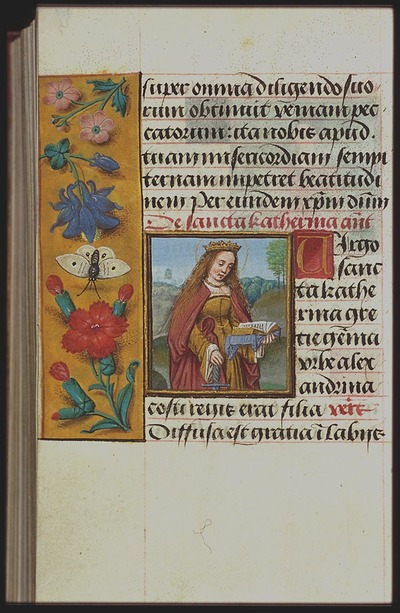 super omnia diligendo suo
rum obtinuit veniam pec
catorum: ita nobis apud.
tuam misericordiam sempi
ternam impetret beatitudi
nem Per eundem xpm dnm
De sancta katherina ant
Virgo
sanc
ta kathe
rina gre
cie gema
vrbe alex
andrina
costi regis erat filia vers
Diffusa est gratia i labijs